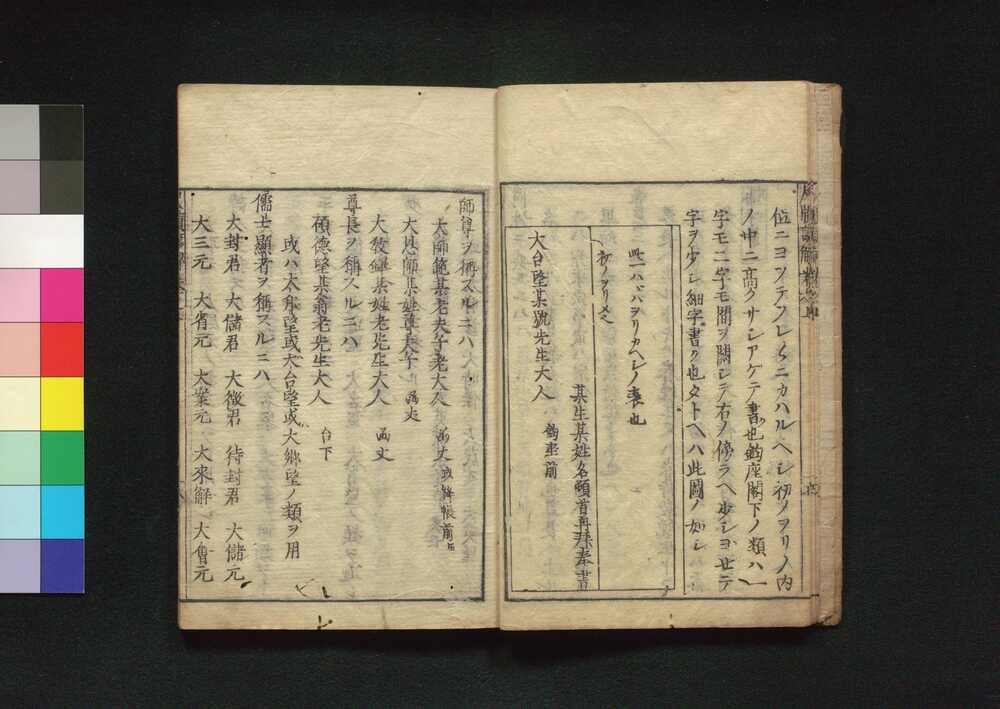 位ニヨツテソレ〱ニカハルヘシ初ノヲリノ内
ノ中ニ高クサシアケテ書也鈞座閣下ノ類ハ一
字モニ字モ間ヲ闕シテ右ノ傍ラヘ少シヨセテ
字ヲ少シ細字書ク也タトヘハ此圖ノ如シ
此一ハヾハヲリカヘシノ裏也
初ノヲリメ
某生某姓名頓首再拜奉書
大台望某號先生大人 鈞座前
師尊ヲ稱スルニハ
大師範某老夫子老大人 函丈或絳帳前
大恩師某姓尊夫子 函丈
大教鐸某姓老先生大人 函丈
尊長ヲ稱スルニハ
碩德望某翁老先生大人 台下
或ハ大邦望或大台望或大郷望ノ類ヲ用
儒士顯者ヲ稱スルニハ
大封君 大儲君 大徵君 待封君 大儲元
大三元 大省元 大業元 大來解 大會元